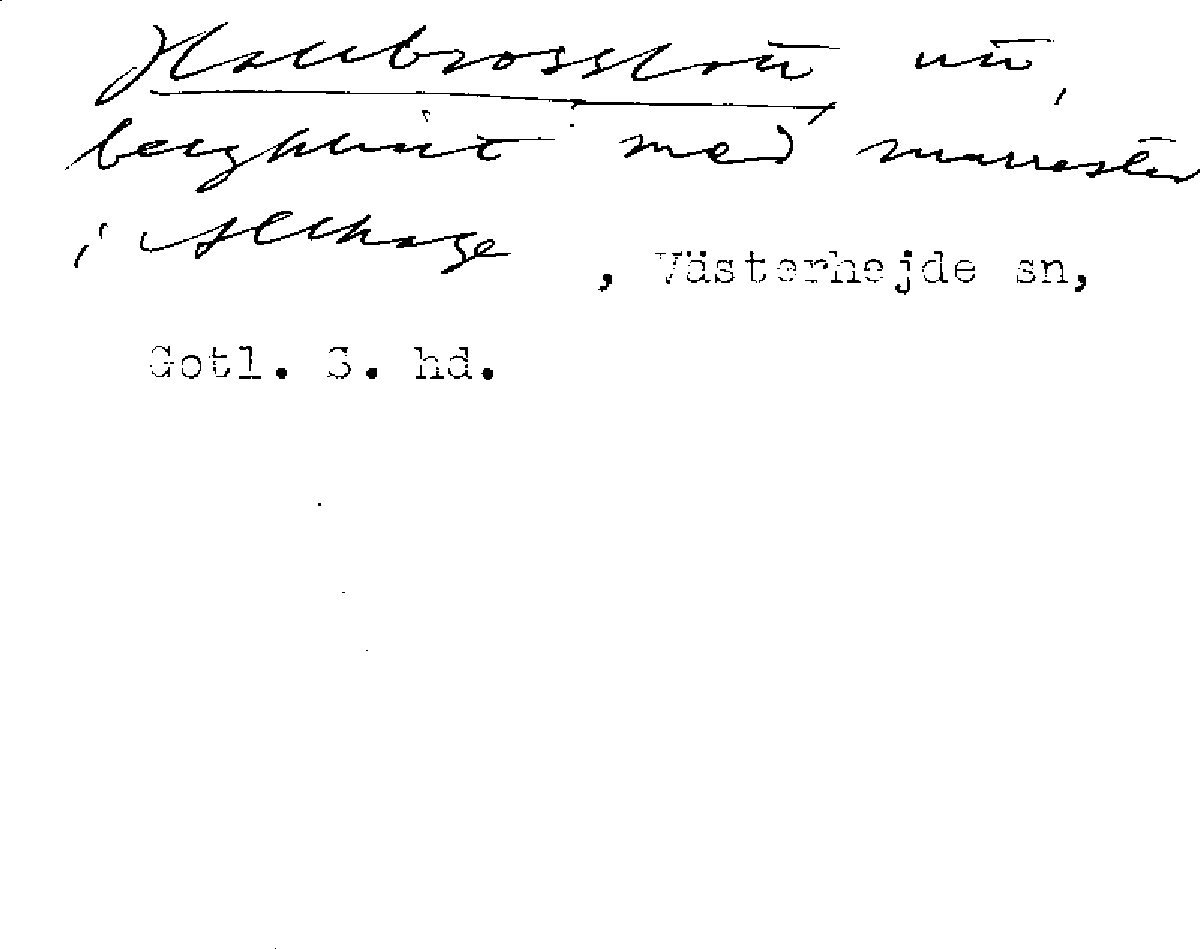 Hallbrosslott nu
bergklint med murrester
i Allhage, Västerhejde sn,
Gotl. S. hd.